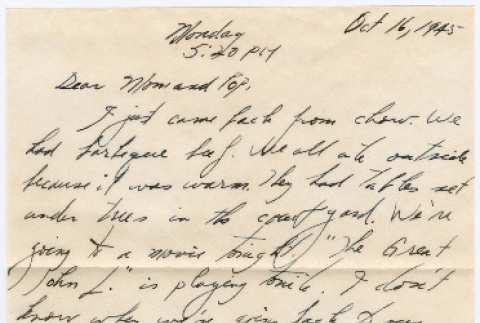 Oct 16, 1945
Monday
5:40 PM
Dear Mom and Pop,
I just came back from chow. We
had barbeque beef. We all ate outside
because it was warm. They had tables set
under trees in the court yard. We're
going to a movie tonight. "The Great
John L." is playing tonite. I don't
know when we're going back to